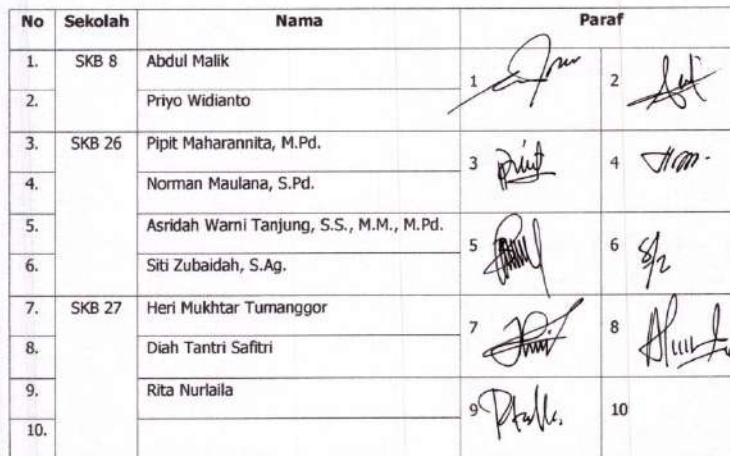 No Sekolah Nama Paraf
1. SKB 8 Abdul Malik
1 2
2. Priyo Widianto
3. SKB 26 Pipit Maharannita, M.Pd.
3 4
4. Norman Maulana, S.Pd.
5. Asridah Warni Tanjung, S.S., M.M., M.Pd.
5 6
6. Siti Zubaidah, S.Ag.
7. SKB 27 Heri Mukhtar Tumanggor
7 8
8. Diah Tantri Safitri
9. Rita Nurlaila
9 10
10.